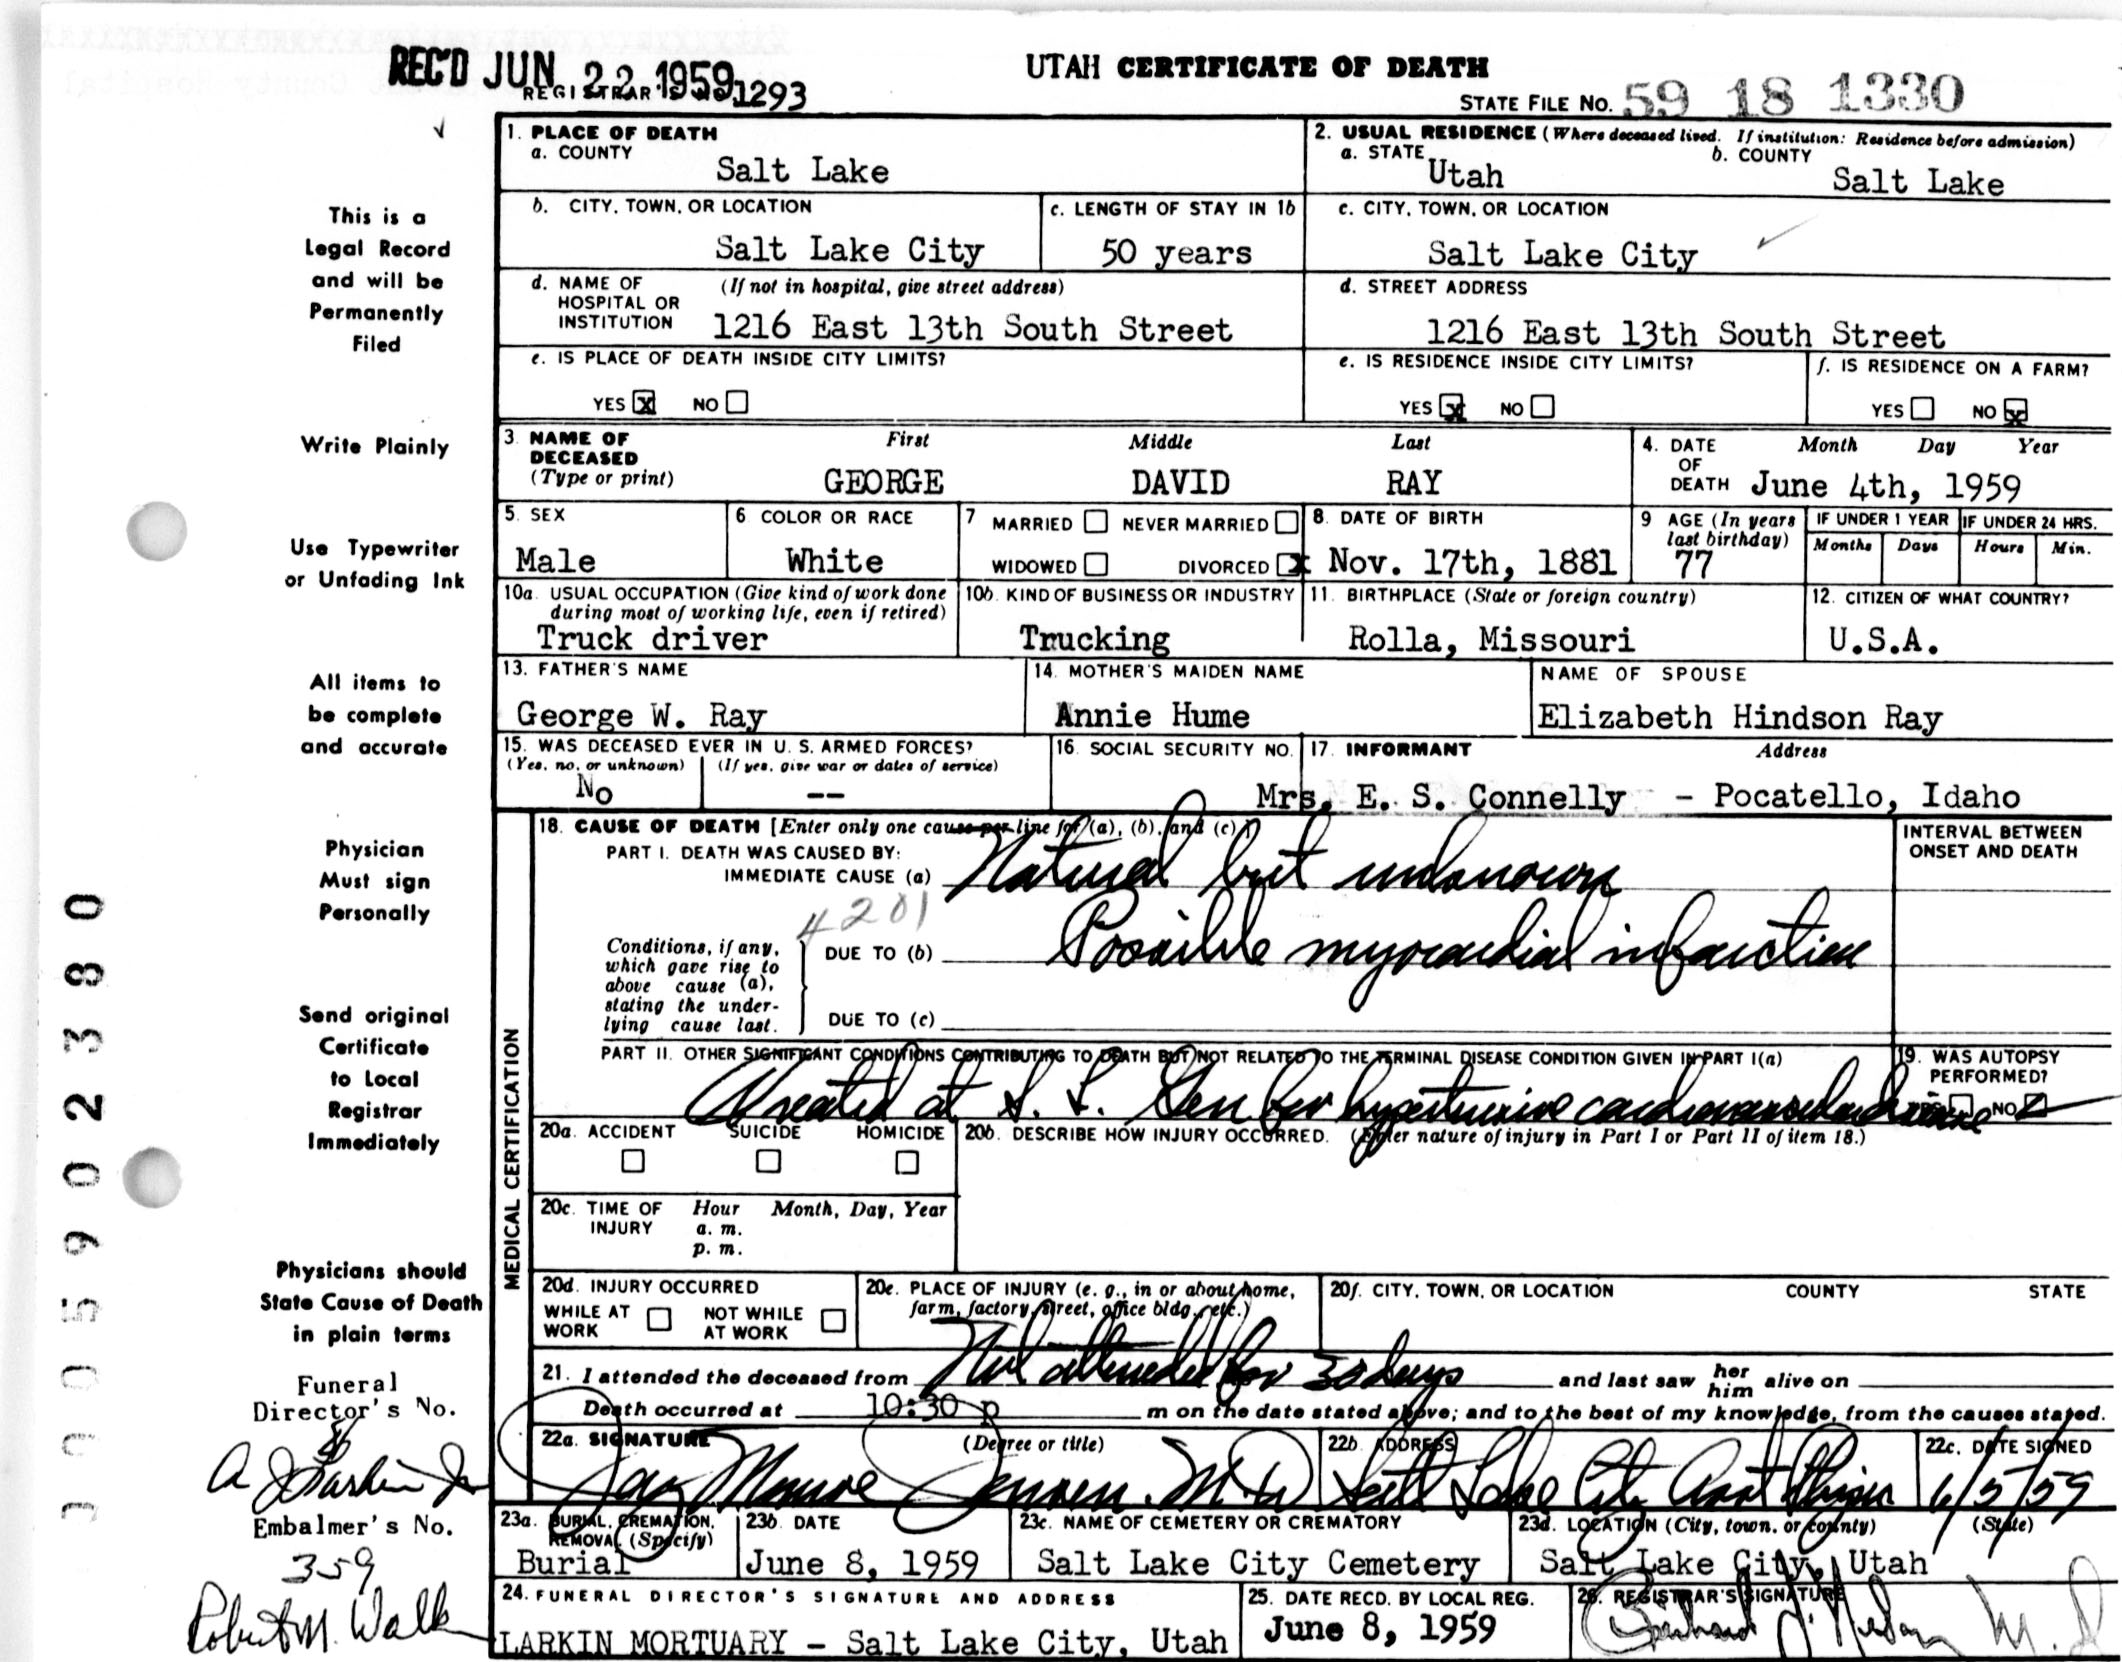 REC'D JUN 22 1959
REGISTRAR'S 1293
UTAH CERTIFICATE OF DEATH
STATE FILE NO. 59 18 1330
This is a
Legal Record
and will be
Permanently
Filed
Write Plainly
Use Typewriter
or Unfading Ink
All items to
be complete
and accurate
Physician
Must sign
Personally
Send original
Certificate
to Local
Registrar
Immediately
Physicians should
State Cause of Death
in plain terms
Funeral
Director's No.
Embalmer's No.
359
Robert M. Walk
1. PLACE OF DEATH
a. COUNTY
Salt Lake
2. USUAL RESIDENCE (Where deceased lived. If institution: Residence before admission)
a. STATE b. COUNTY
Utah Salt Lake
b. CITY, TOWN, OR LOCATION
Salt Lake City
c. LENGTH OF STAY IN 1b
50 years
c. CITY, TOWN, OR LOCATION
Salt Lake City
d. NAME OF HOSPITAL OR INSTITUTION (If not in hospital, give street address)
1216 East 13th South Street
d. STREET ADDRESS
1216 East 13th South Street
e. IS PLACE OF DEATH INSIDE CITY LIMITS?
YES X NO
e. IS RESIDENCE INSIDE CITY LIMITS?
YES X NO
f. IS RESIDENCE ON A FARM?
YES NO X
3. NAME OF DECEASED (Type or print)
First Middle Last
GEORGE DAVID RAY
4. DATE OF DEATH Month Day Year
June 4th, 1959
5. SEX
Male
6. COLOR OR RACE
White
7 MARRIED NEVER MARRIED
WIDOWED DIVORCED X
8. DATE OF BIRTH
Nov. 17th, 1881
9 AGE (In years last birthday)
77
IF UNDER 1 YEAR
Months Days
IF UNDER 24 HRS.
Hours Min.
10a. USUAL OCCUPATION (Give kind of work done during most of working life, even if retired)
Truck driver
10b. KIND OF BUSINESS OR INDUSTRY
Trucking
11. BIRTHPLACE (State or foreign country)
Rolla, Missouri
12. CITIZEN OF WHAT COUNTRY?
U.S.A.
13. FATHER'S NAME
George W. Ray
14. MOTHER'S MAIDEN NAME
Annie Hume
NAME OF SPOUSE
Elizabeth Hindson Ray
15. WAS DECEASED EVER IN U. S. ARMED FORCES?
(Yes, no, or unknown) (If yes, give war or dates of service)
No --
16. SOCIAL SECURITY NO.
17. INFORMANT Address
Mrs. E. S. Connelly - Pocatello, Idaho
MEDICAL CERTIFICATION
18. CAUSE OF DEATH [Enter only one cause per line for (a), (b), and (c).]
PART I. DEATH WAS CAUSED BY:
IMMEDIATE CAUSE (a) Natural but unknown
4201
Conditions, if any, which gave rise to above cause (a), stating the underlying cause last.
DUE TO (b) Possible myocardial infarction
DUE TO (c)
INTERVAL BETWEEN ONSET AND DEATH
PART II. OTHER SIGNIFICANT CONDITIONS CONTRIBUTING TO DEATH BUT NOT RELATED TO THE TERMINAL DISEASE CONDITION GIVEN IN PART I(a)
Treated at S. L. Gen for hypertensive cardiovascular disease
19. WAS AUTOPSY PERFORMED?
YES NO
20a. ACCIDENT SUICIDE HOMICIDE
20b. DESCRIBE HOW INJURY OCCURRED. (Enter nature of injury in Part I or Part II of item 18.)
20c. TIME OF INJURY Hour Month, Day, Year
a. m.
p. m.
20d. INJURY OCCURRED
WHILE AT WORK NOT WHILE AT WORK
20e. PLACE OF INJURY (e. g., in or about home, farm, factory, street, office bldg., etc.)
20f. CITY, TOWN, OR LOCATION COUNTY STATE
21. I attended the deceased from Not attended for 30 days and last saw her him alive on
Death occurred at 10:30 p m on the date stated above; and to the best of my knowledge, from the causes stated.
22a. SIGNATURE (Degree or title)
Jay Monroe Jensen. M.D
22b. ADDRESS
Salt Lake City Asst Physician
22c. DATE SIGNED
6/5/59
23a. BURIAL, CREMATION, REMOVAL (Specify)
Burial
23b. DATE
June 8, 1959
23c. NAME OF CEMETERY OR CREMATORY
Salt Lake City Cemetery
23d. LOCATION (City, town, or county) (State)
Salt Lake City, Utah
24. FUNERAL DIRECTOR'S SIGNATURE AND ADDRESS
LARKIN MORTUARY - Salt Lake City, Utah
25. DATE RECD. BY LOCAL REG.
June 8, 1959
26. REGISTRAR'S SIGNATURE
M.D